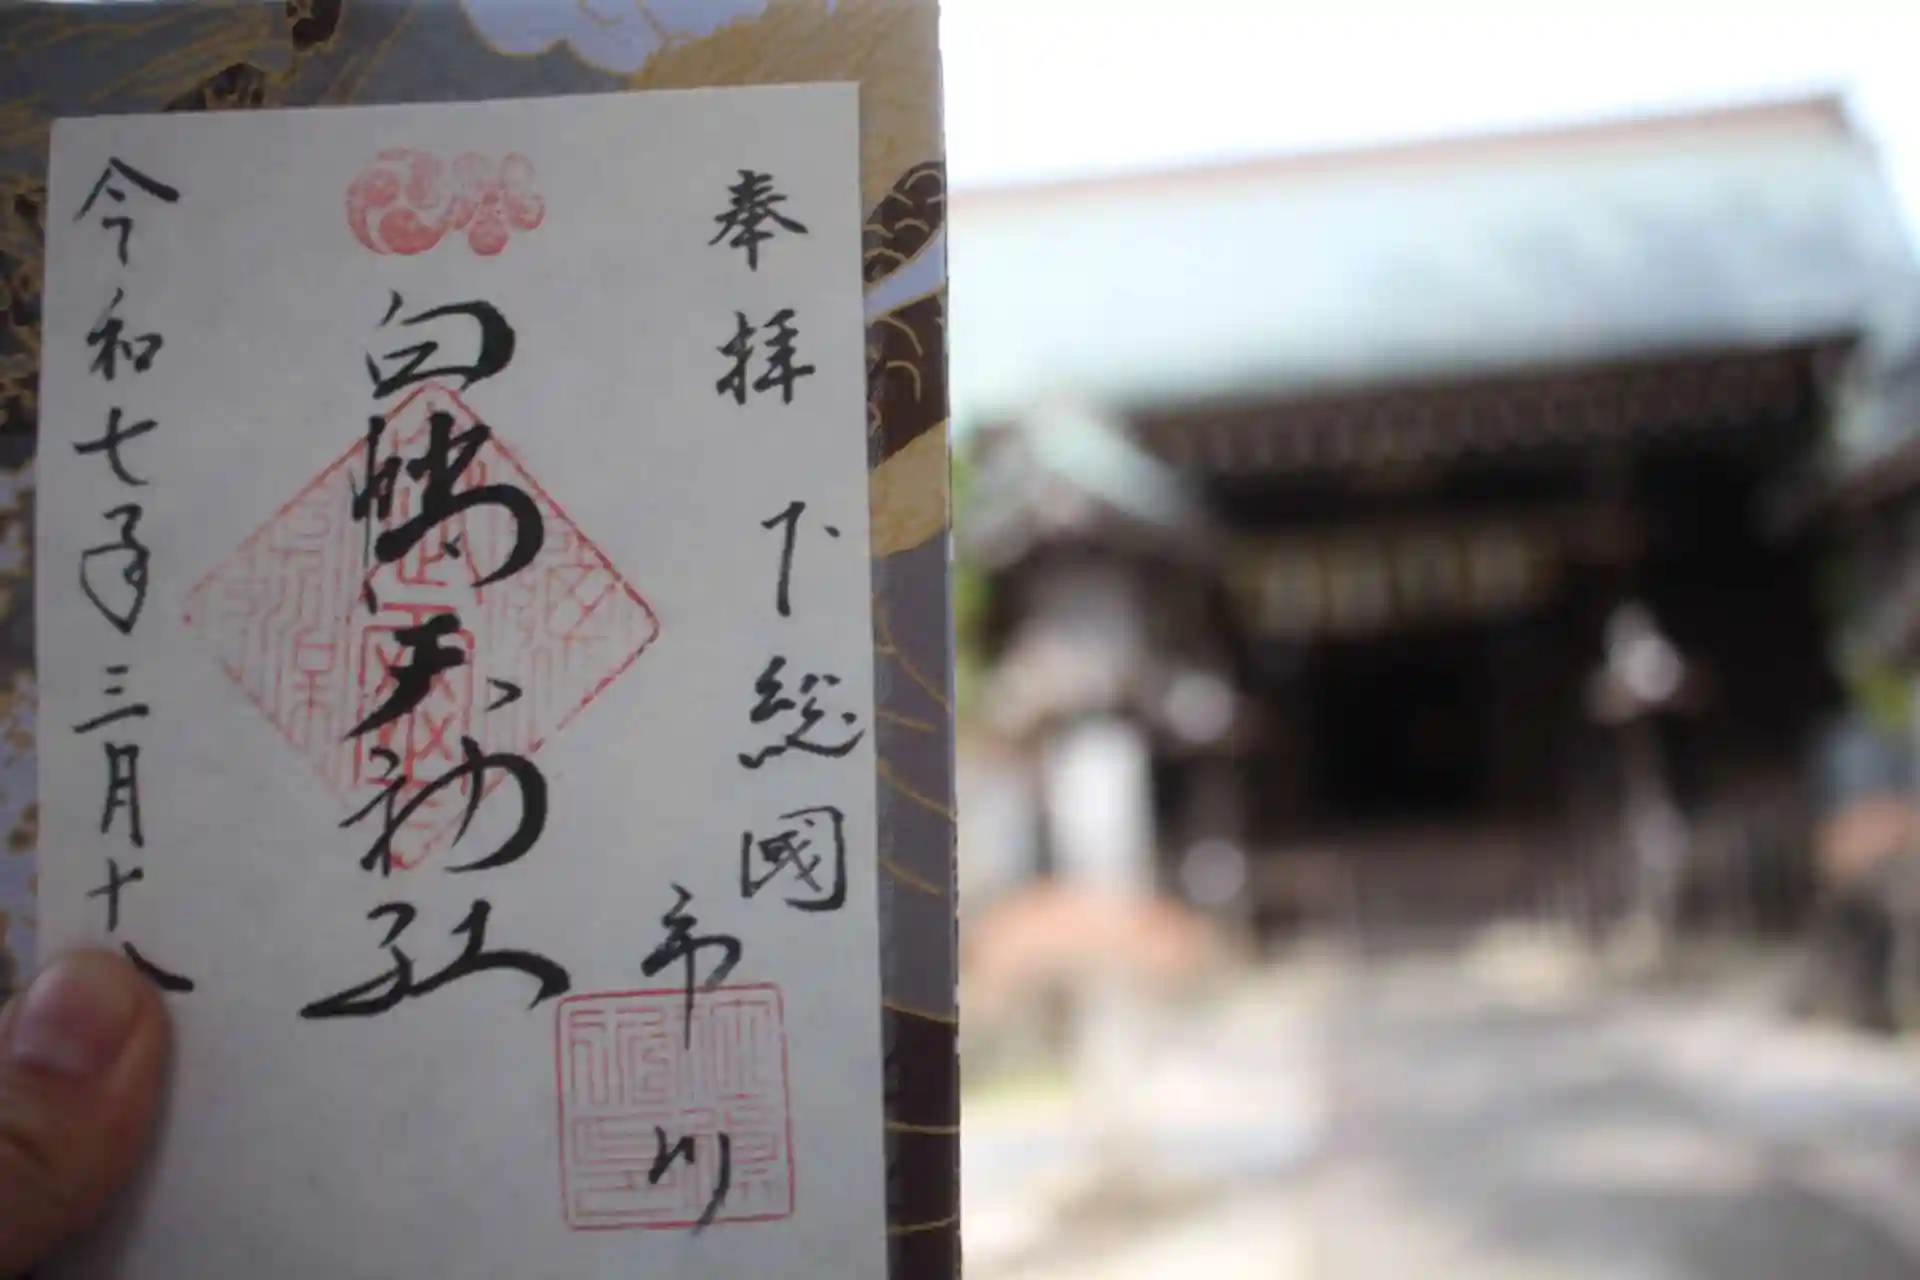 奉拝 下総國
市川
白幡天神社
令和七年三月十八